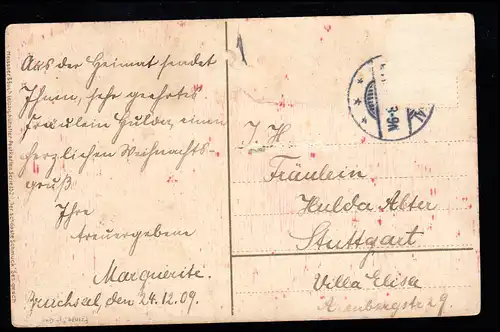 Aus der Heimat sendet
Ihnen, sehr geehrtes
Fräulein Hulda, einen
herzlichen Weihnachts-
gruß
Ihre
treuergebene
Marguerite.
Bruchsal, den 24.12.09.
Fräulein
Hulda Alter
Stuttgart
Villa Elisa